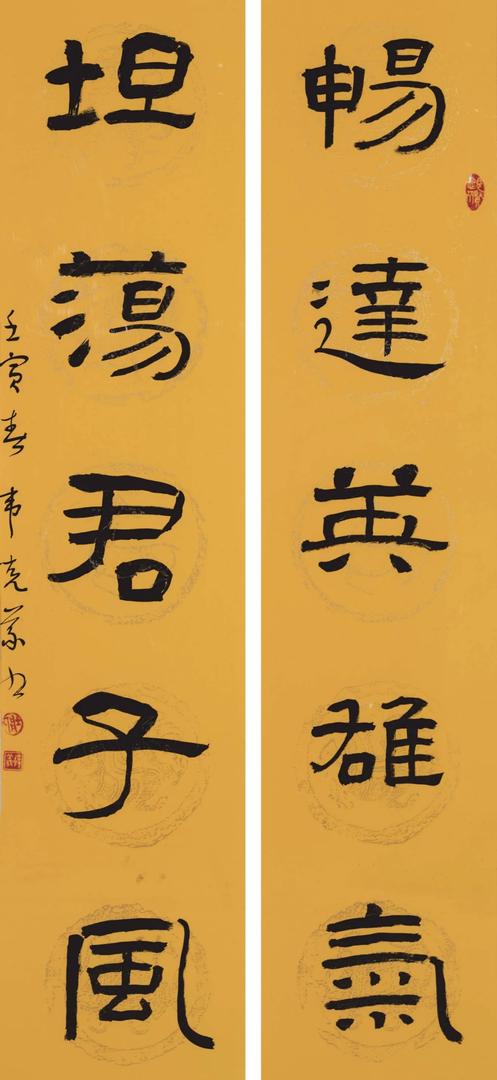 暢達英雄氣
坦蕩君子風
壬寅春韦克义书